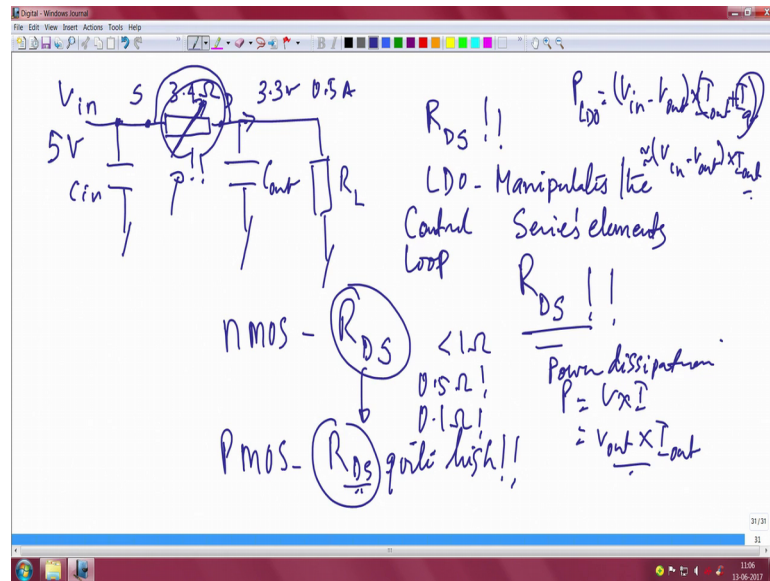 Digital - Windows Journal
File Edit View Insert Actions Tools Help
Vin S 3.4Ω 3.3v 0.5A
5V
Cin P!! Cout RL
P LDO = (Vin - Vout) × (Iout + Iq)
≈ (Vin - Vout) × Iout
RDS !!
LDO - Manipulates the
Control Series elements
loop
RDS !!
nmos - RDS <1Ω
0.5Ω!
0.1Ω!
Pmos - RDS quite high!!
Power dissipation
P = V×I
= Vout × Iout
31/31
31
11:06
13-06-2017